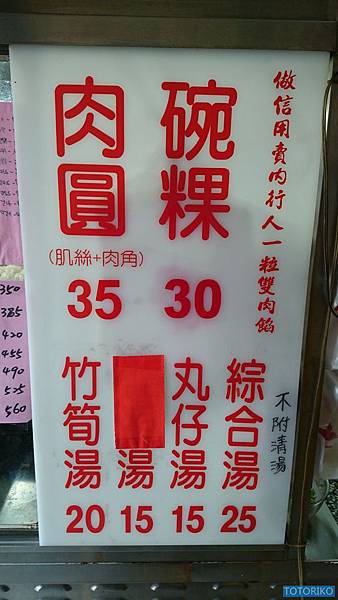 做信用賣內行人一粒雙肉餡
碗粿
30
肉圓
(肌絲+肉角)
35
綜合湯
25
丸仔湯
15
湯
15
竹筍湯
20
不附清湯
350
385
420
455
490
525
560
TOTORIKO